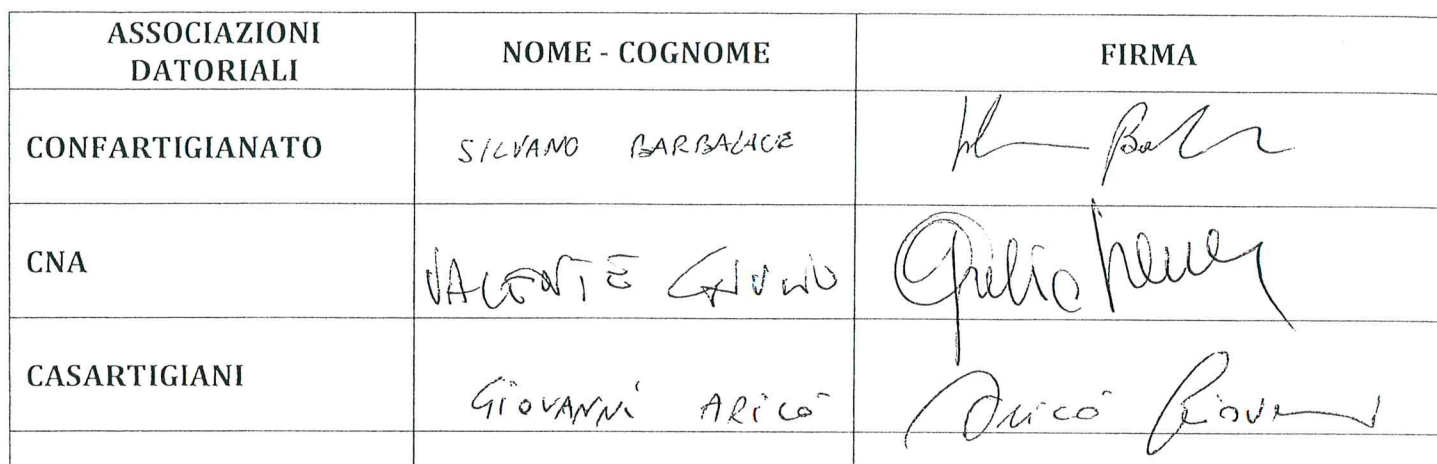 ASSOCIAZIONI DATORIALI NOME - COGNOME FIRMA
CONFARTIGIANATO SILVANO BARBALACE
CNA VALENTE GIULIO Giulio
CASARTIGIANI GIOVANNI ARICÒ Aricò Giovanni